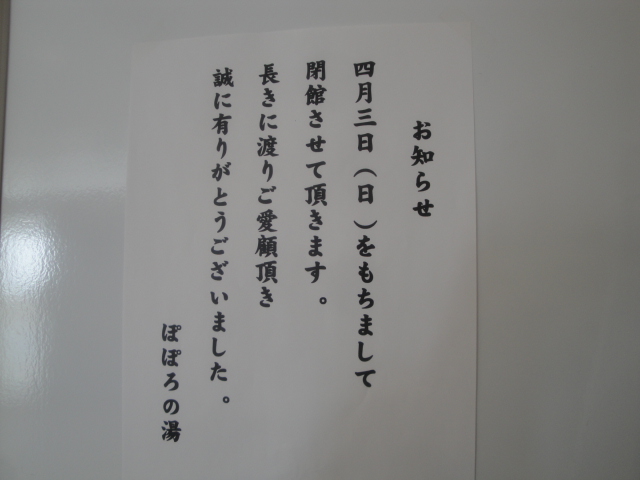 お知らせ
四月三日(日)をもちまして
閉館させて頂きます。
長きに渡りご愛顧頂き
誠に有りがとうございました。
ぽぽろの湯